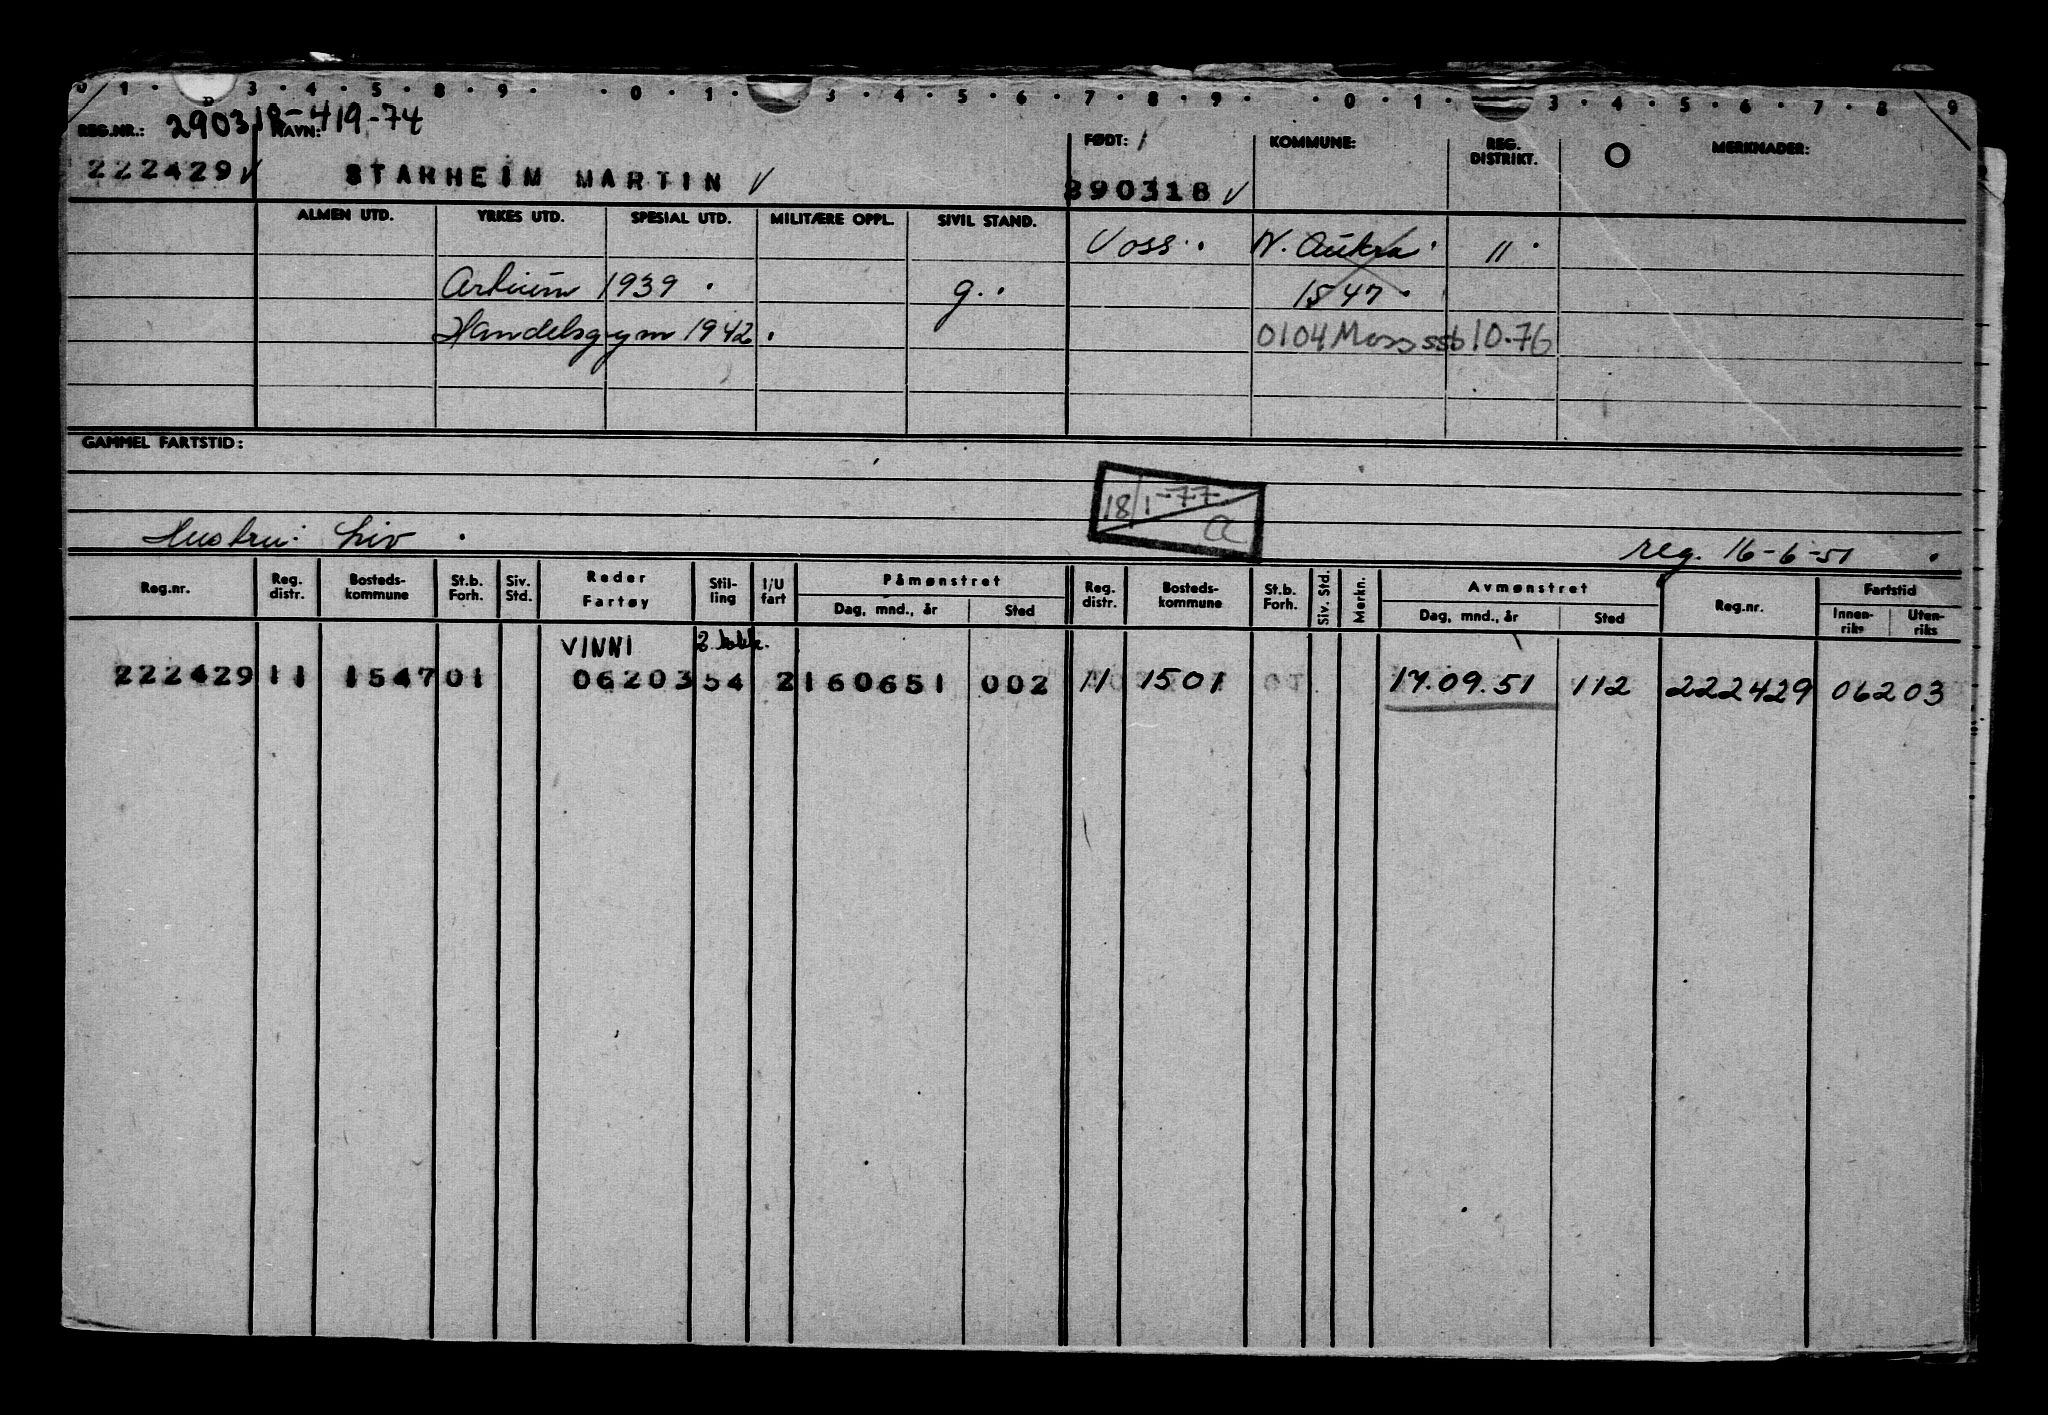 0 1 · 3 · 4 · 5 · 8 · 9 · · 0 · 1 · 3 · 4 · 5 · 6 · 7 · 8 · 9 · · 0 · 1 · 3 · 4 · 5 · 6 · 7 · 8 9
REG.NR.: 290318-419-74 NAVN: FØDT: KOMMUNE: REG. DISTRIKT. O MERKNADER:
222429 ✓ STARHEIM MARTIN ✓ 890318 ✓
ALMEN UTD. YRKES UTD. SPESIAL UTD. MILITÆRE OPPL. SIVIL STAND.
Voss. N. Aukra 11
Artium 1939 g. 1547
Handelsgym 1942 0104 Moss ssb 10.76
GAMMEL FARTSTID:
18/1-77
a
Hustru: Liv reg. 16-6-51
Reg.nr. Reg. distr. Bosteds-kommune St.b. Forh. Siv. Std. Reder Fartøy Stil-ling I/U fart Påmønstret Dag, mnd., år Sted Reg. distr. Bosteds-kommune St.b. Forh. Siv. Std. Merkn. Avmønstret Dag, mnd., år Sted Reg.nr. Fartstid Innen-riks Uten-riks
VINNI
222429 11 1547 01 06203 54 2 160651 002 11 1501 17.09.51 112 222429 06203